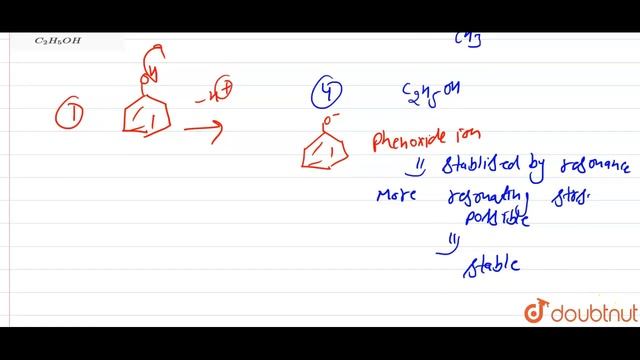 C₂H₅OH
CH₃
OH
① −H⊕
④ C₂H₅OH
O⁻
Phenoxide ion
stablised by resonance
More resonating strs.
possible
stable
doubtnut